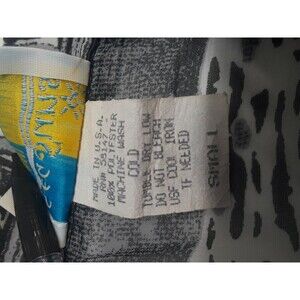 MADE IN U.S.A.
100% POLYESTER
MACHINE WASH
COLD
TUMBLE DRY LOW
DO NOT BLEACH
USE COOL IRON
IF NEEDED
SMALL